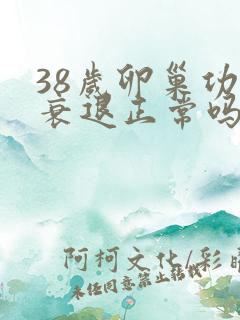 38岁卵巢功
衰退正常吗
阿柯文化/彩
未经同意禁止转载